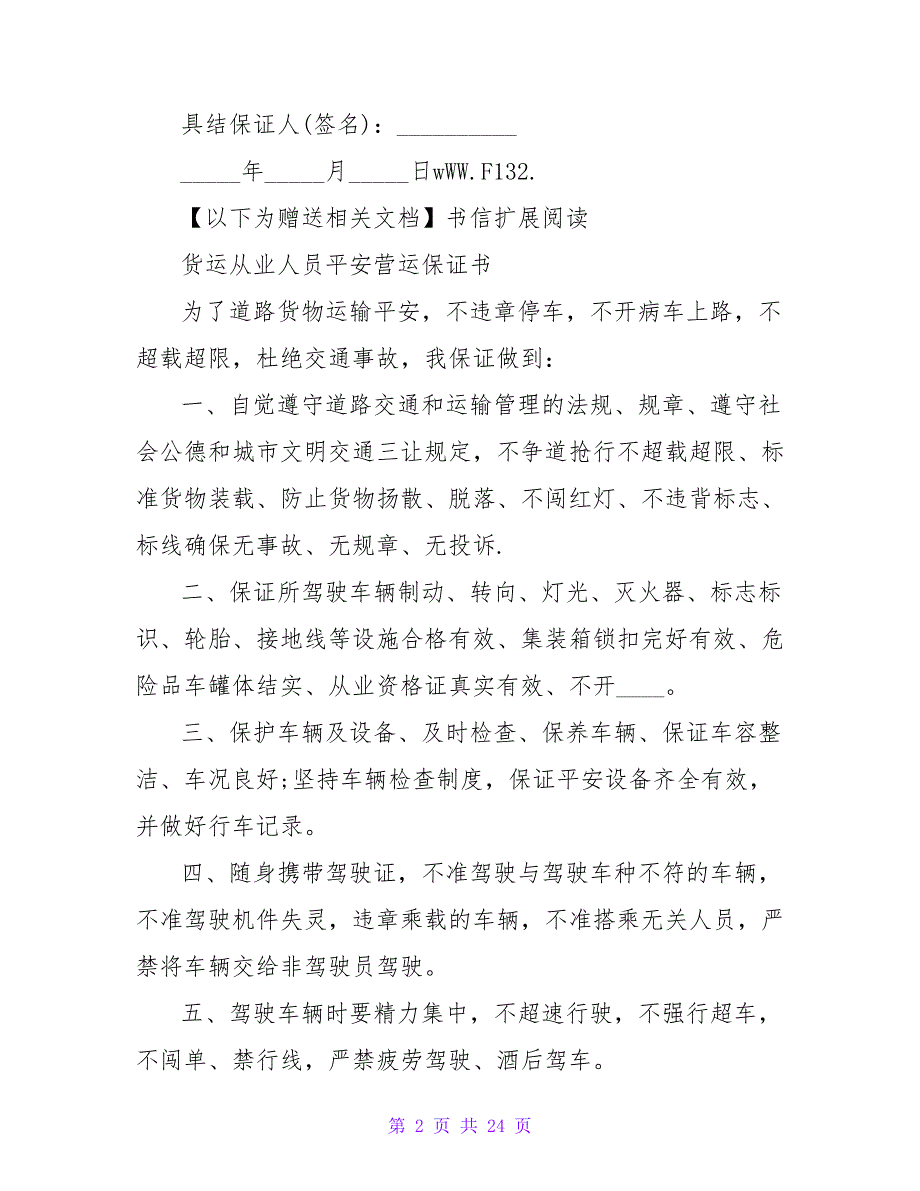 具结保证人(签名)：__________
_____年_____月_____日wWW.F132.
【以下为赠送相关文档】书信扩展阅读
货运从业人员平安营运保证书
为了道路货物运输平安，不违章停车，不开病车上路，不
超载超限，杜绝交通事故，我保证做到：
一、自觉遵守道路交通和运输管理的法规、规章、遵守社
会公德和城市文明交通三让规定，不争道抢行不超载超限、标
准货物装载、防止货物扬散、脱落、不闯红灯、不违背标志、
标线确保无事故、无规章、无投诉.
二、保证所驾驶车辆制动、转向、灯光、灭火器、标志标
识、轮胎、接地线等设施合格有效、集装箱锁扣完好有效、危
险品车罐体结实、从业资格证真实有效、不开____。
三、保护车辆及设备、及时检查、保养车辆、保证车容整
洁、车况良好;坚持车辆检查制度，保证平安设备齐全有效，
并做好行车记录。
四、随身携带驾驶证，不准驾驶与驾驶车种不符的车辆，
不准驾驶机件失灵，违章乘载的车辆，不准搭乘无关人员，严
禁将车辆交给非驾驶员驾驶。
五、驾驶车辆时要精力集中，不超速行驶，不强行超车，
不闯单、禁行线，严禁疲劳驾驶、酒后驾车。
第 2 页 共 24 页